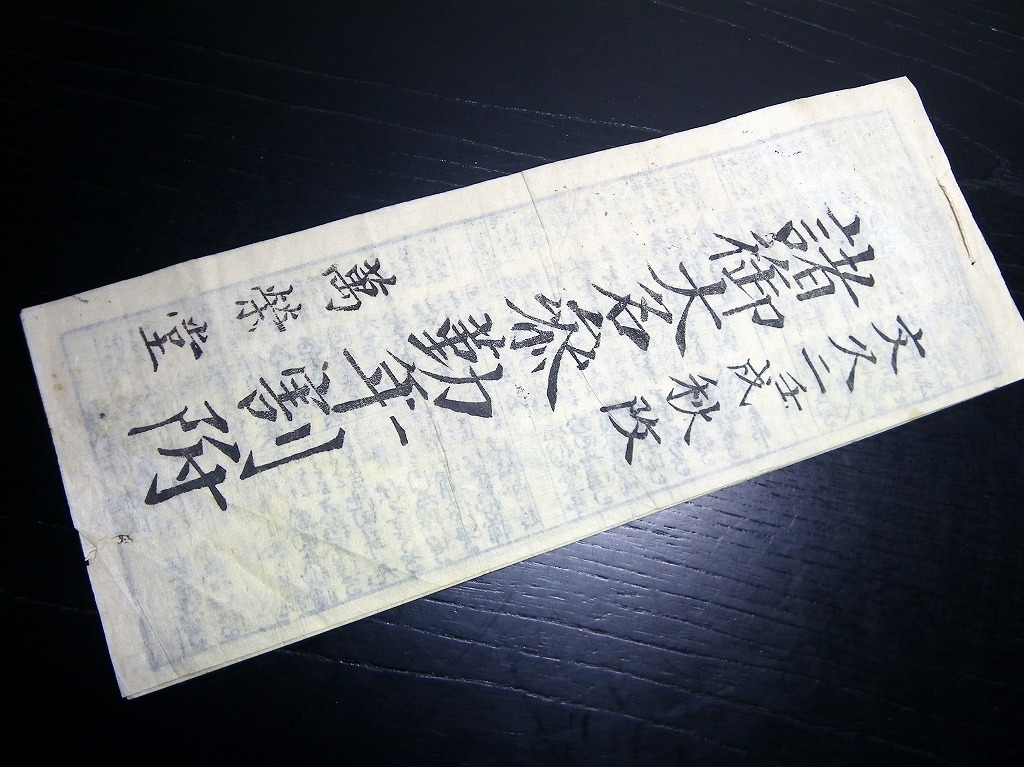 文久二壬戌秋改
諸御大名衆勤年割附
萬榮堂